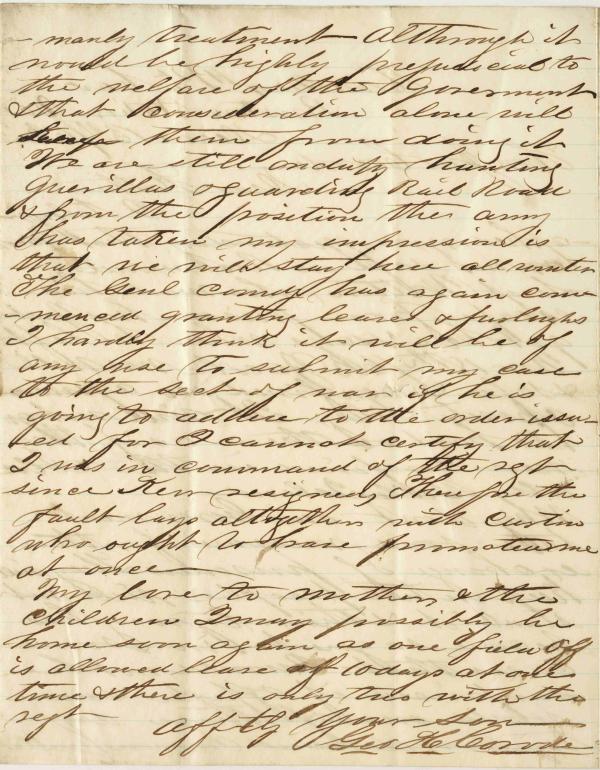 - manly treatment Although it
would be highly prejudicial to
the welfare of the Goverment
& that consideration alone will
them from doing it
We are still on duty hunting
guerillas & guarding Rail Road
& from the position the army
has taken my impression is
that we will stay here all winter
The Genl Comdg has again com-
-menced granting leaves & furloughs
I hardly think it will be of
any use to submit my case
to the Sect of war if he is
going to adhere to the order issu-
ed for I cannot certify that
I was in command of the regt
since Kerr resigned, Therefore the
fault lays altogether with Curtin
who ought to have promoted me
at once
My love to mother & the
children I may possibly be
home soon again as one field off
is allowed leave of 10 days at one
time & there is only two with the
regt
Afftly Your Son
Geo H. Covode